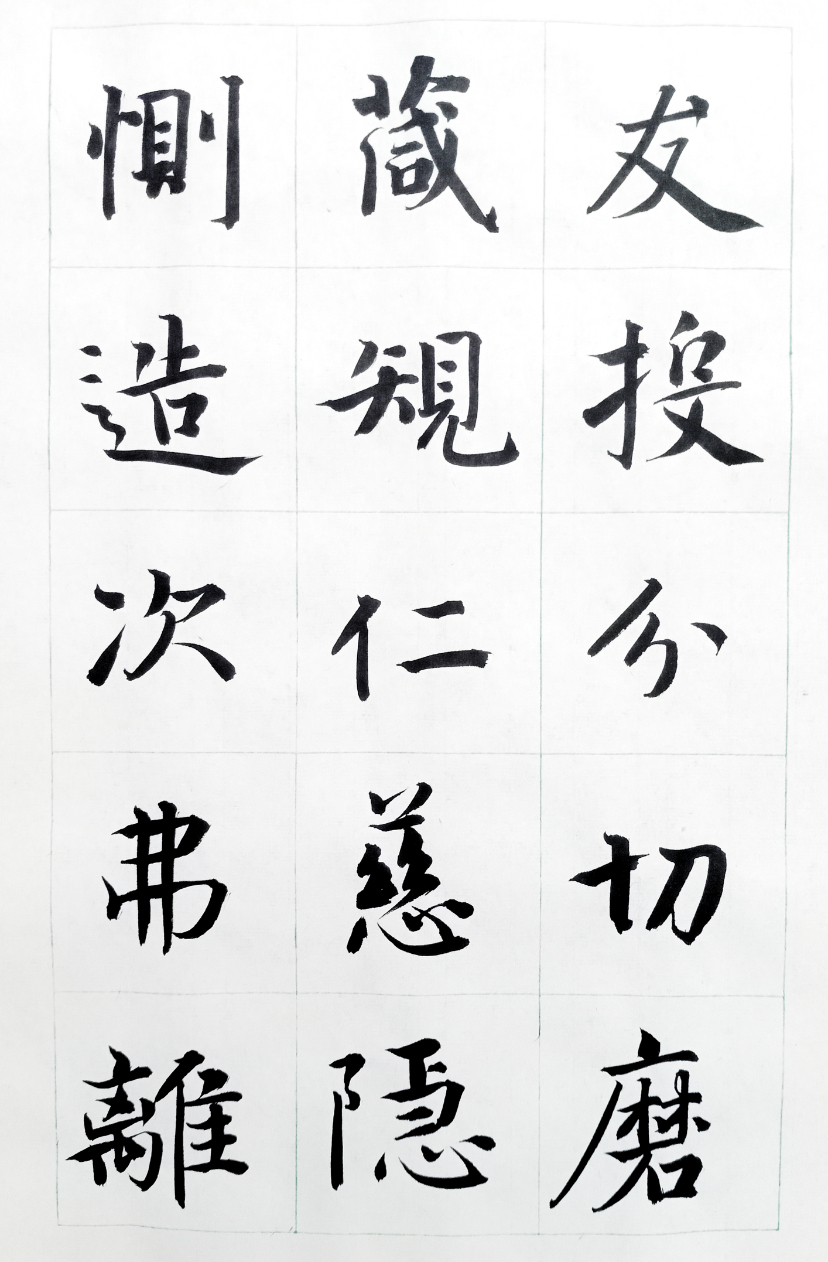 友投分切磨
箴規仁慈隱
惻造次弗離